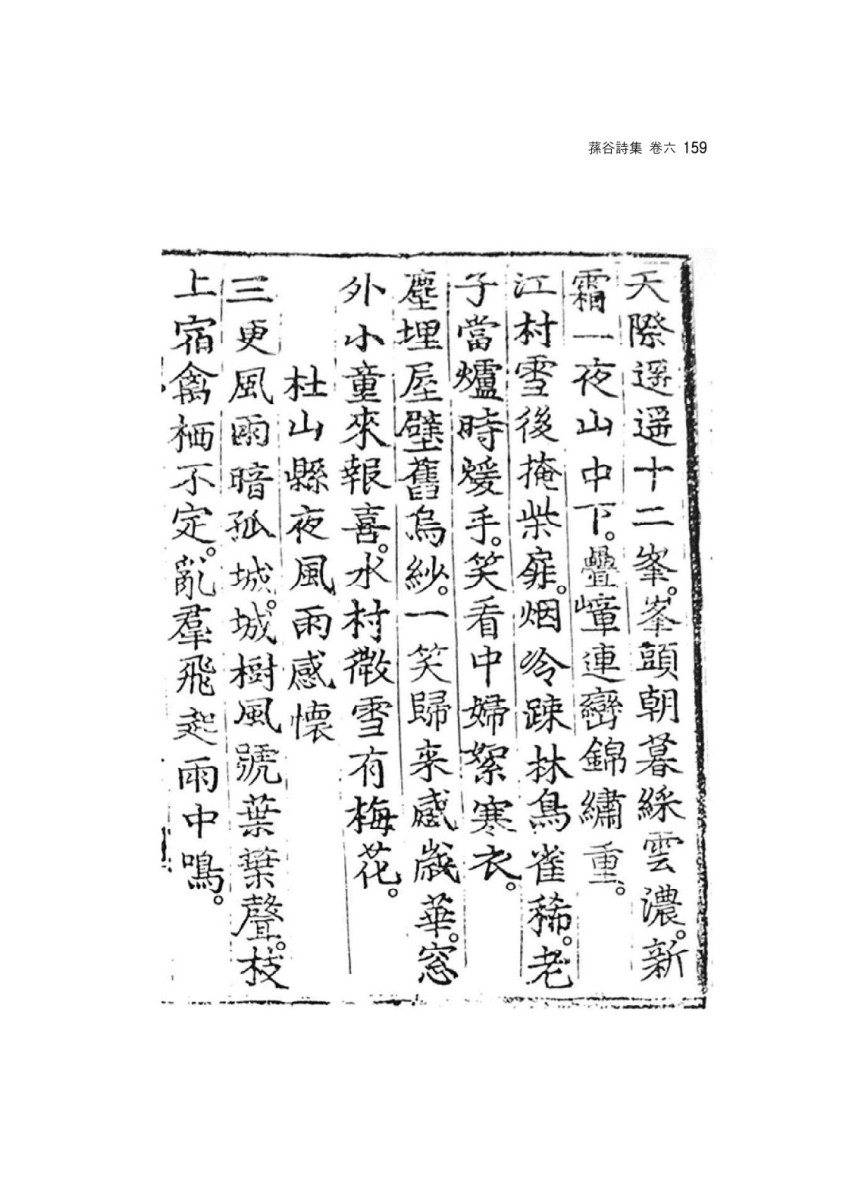 蓀谷詩集 卷六 159
天際遥遥十二峯。峯頭朝暮綵雲濃。新
霜一夜山中下。疊嶂連巒錦繡重。
江村雪後掩柴扉。烟冷踈林鳥雀稀。老
子當爐時煖手。笑看中婦絮寒衣。
塵埋屋壁舊烏紗。一笑歸来感歲華。窓
外小童來報喜。水村微雪有梅花。
杜山縣夜風雨感懷
三更風雨暗孤城。城樹風號葉葉聲。枝
上宿禽栖不定。亂羣飛起雨中鳴。